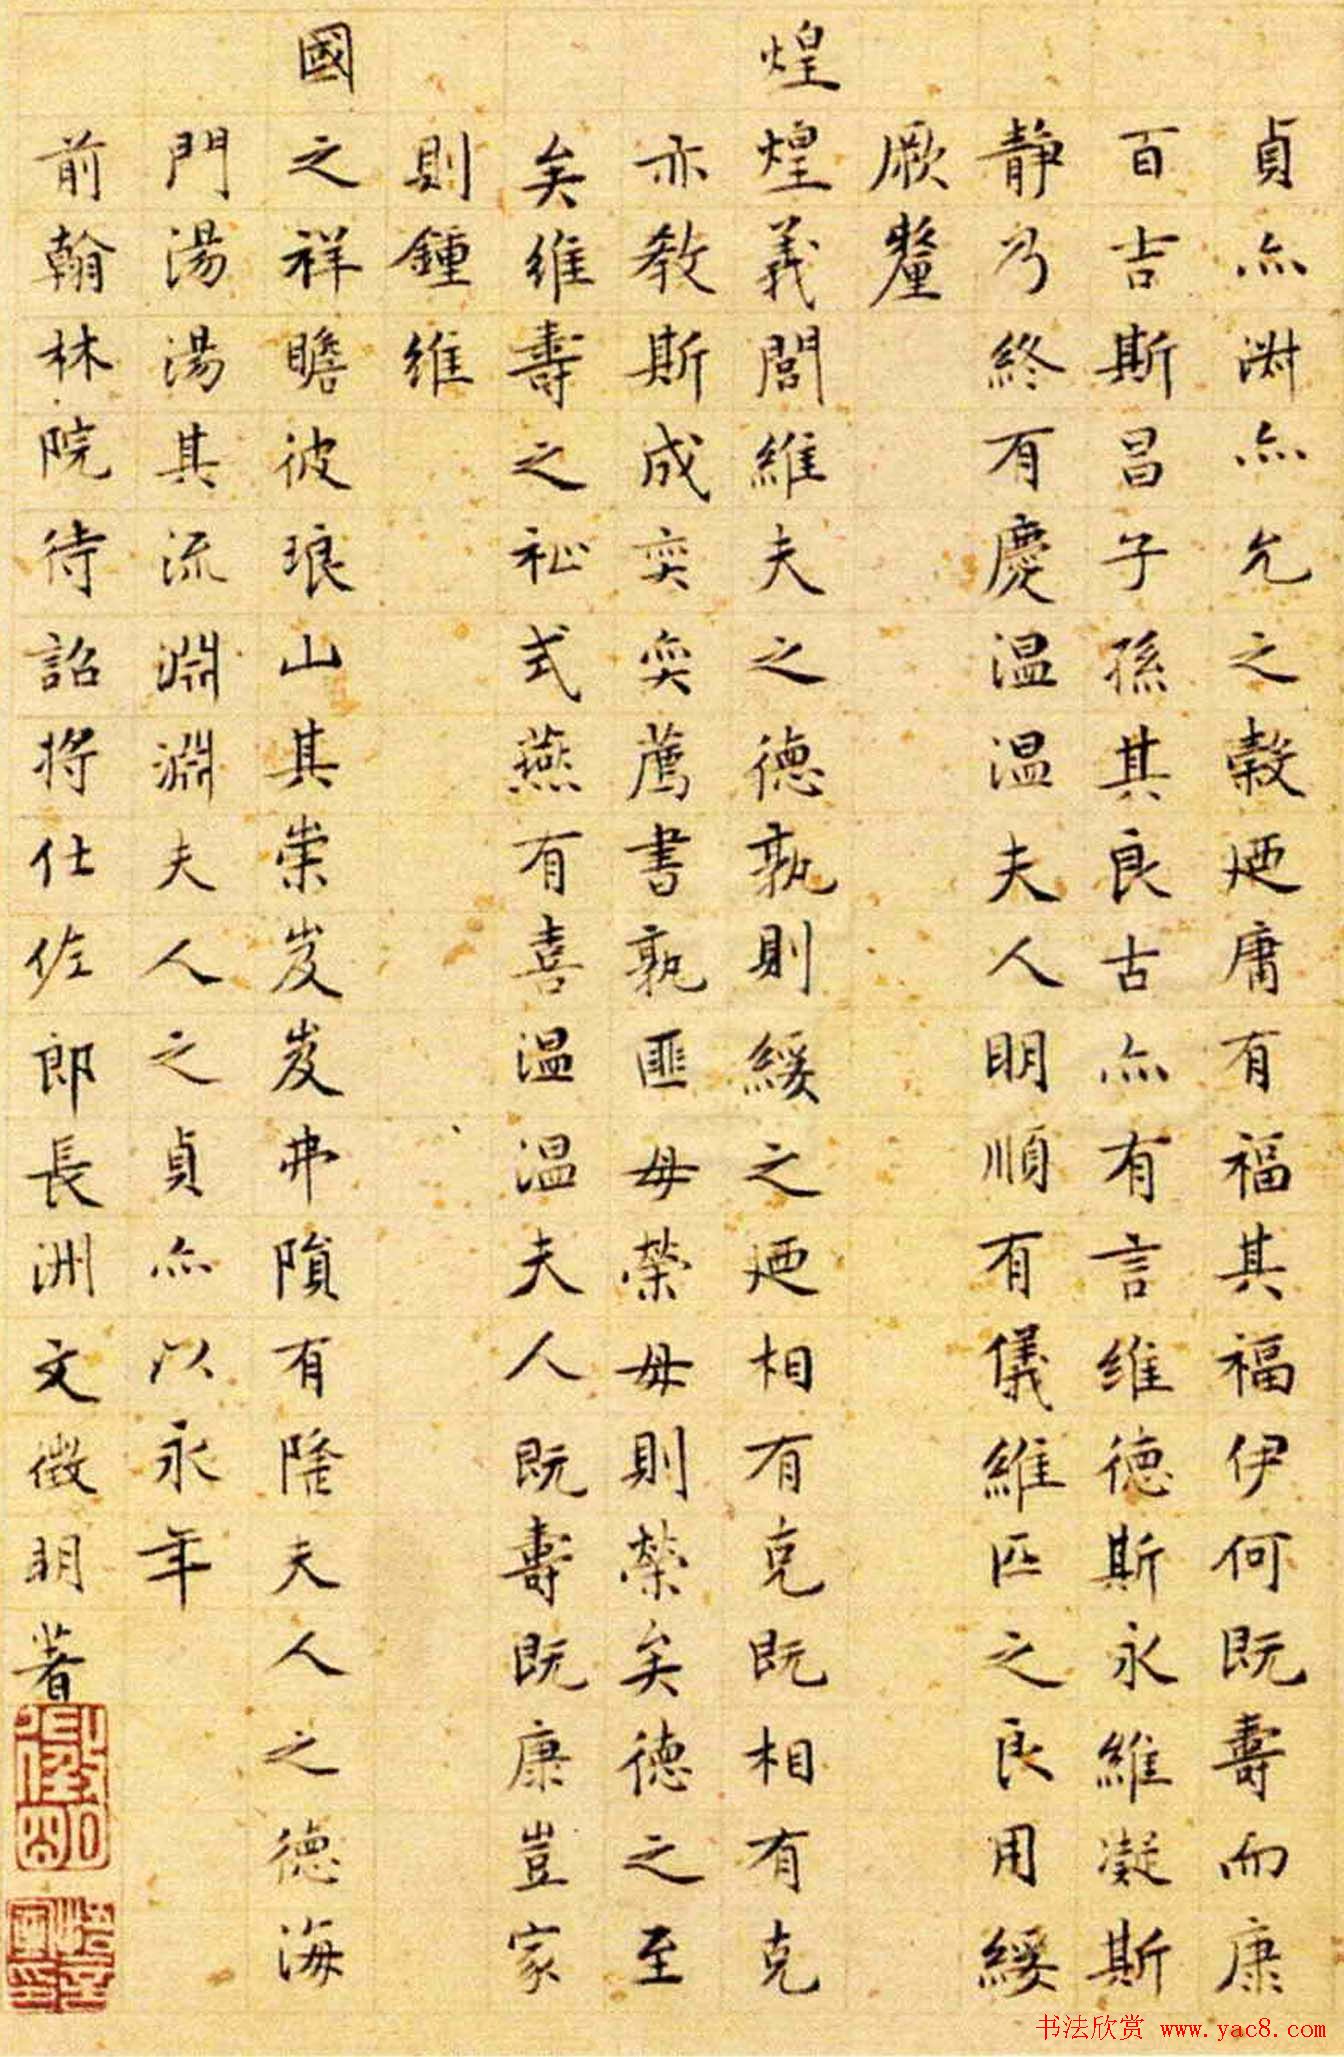 貞亦淵亦允之穀廼庸有福其福伊何既壽而康
百吉斯昌子孫其良古亦有言維德斯永維凝斯
靜乃終有慶温温夫人明順有儀維匹之良用綏
厥釐
煌煌義閭維夫之德孰則綏之廼相有克既相有克
亦教斯成奕奕薦書孰匪母榮母則榮矣德之至
矣維壽之祉式燕有喜温温夫人既壽既康豈家
則鍾維
國之祥瞻彼琅山其崇岌岌弗隕有隆夫人之德海
門湯湯其流淵淵夫人之貞亦以永年
前翰林院待詔将仕佐郎長洲文徵明著
书法欣赏 www.yac8.com